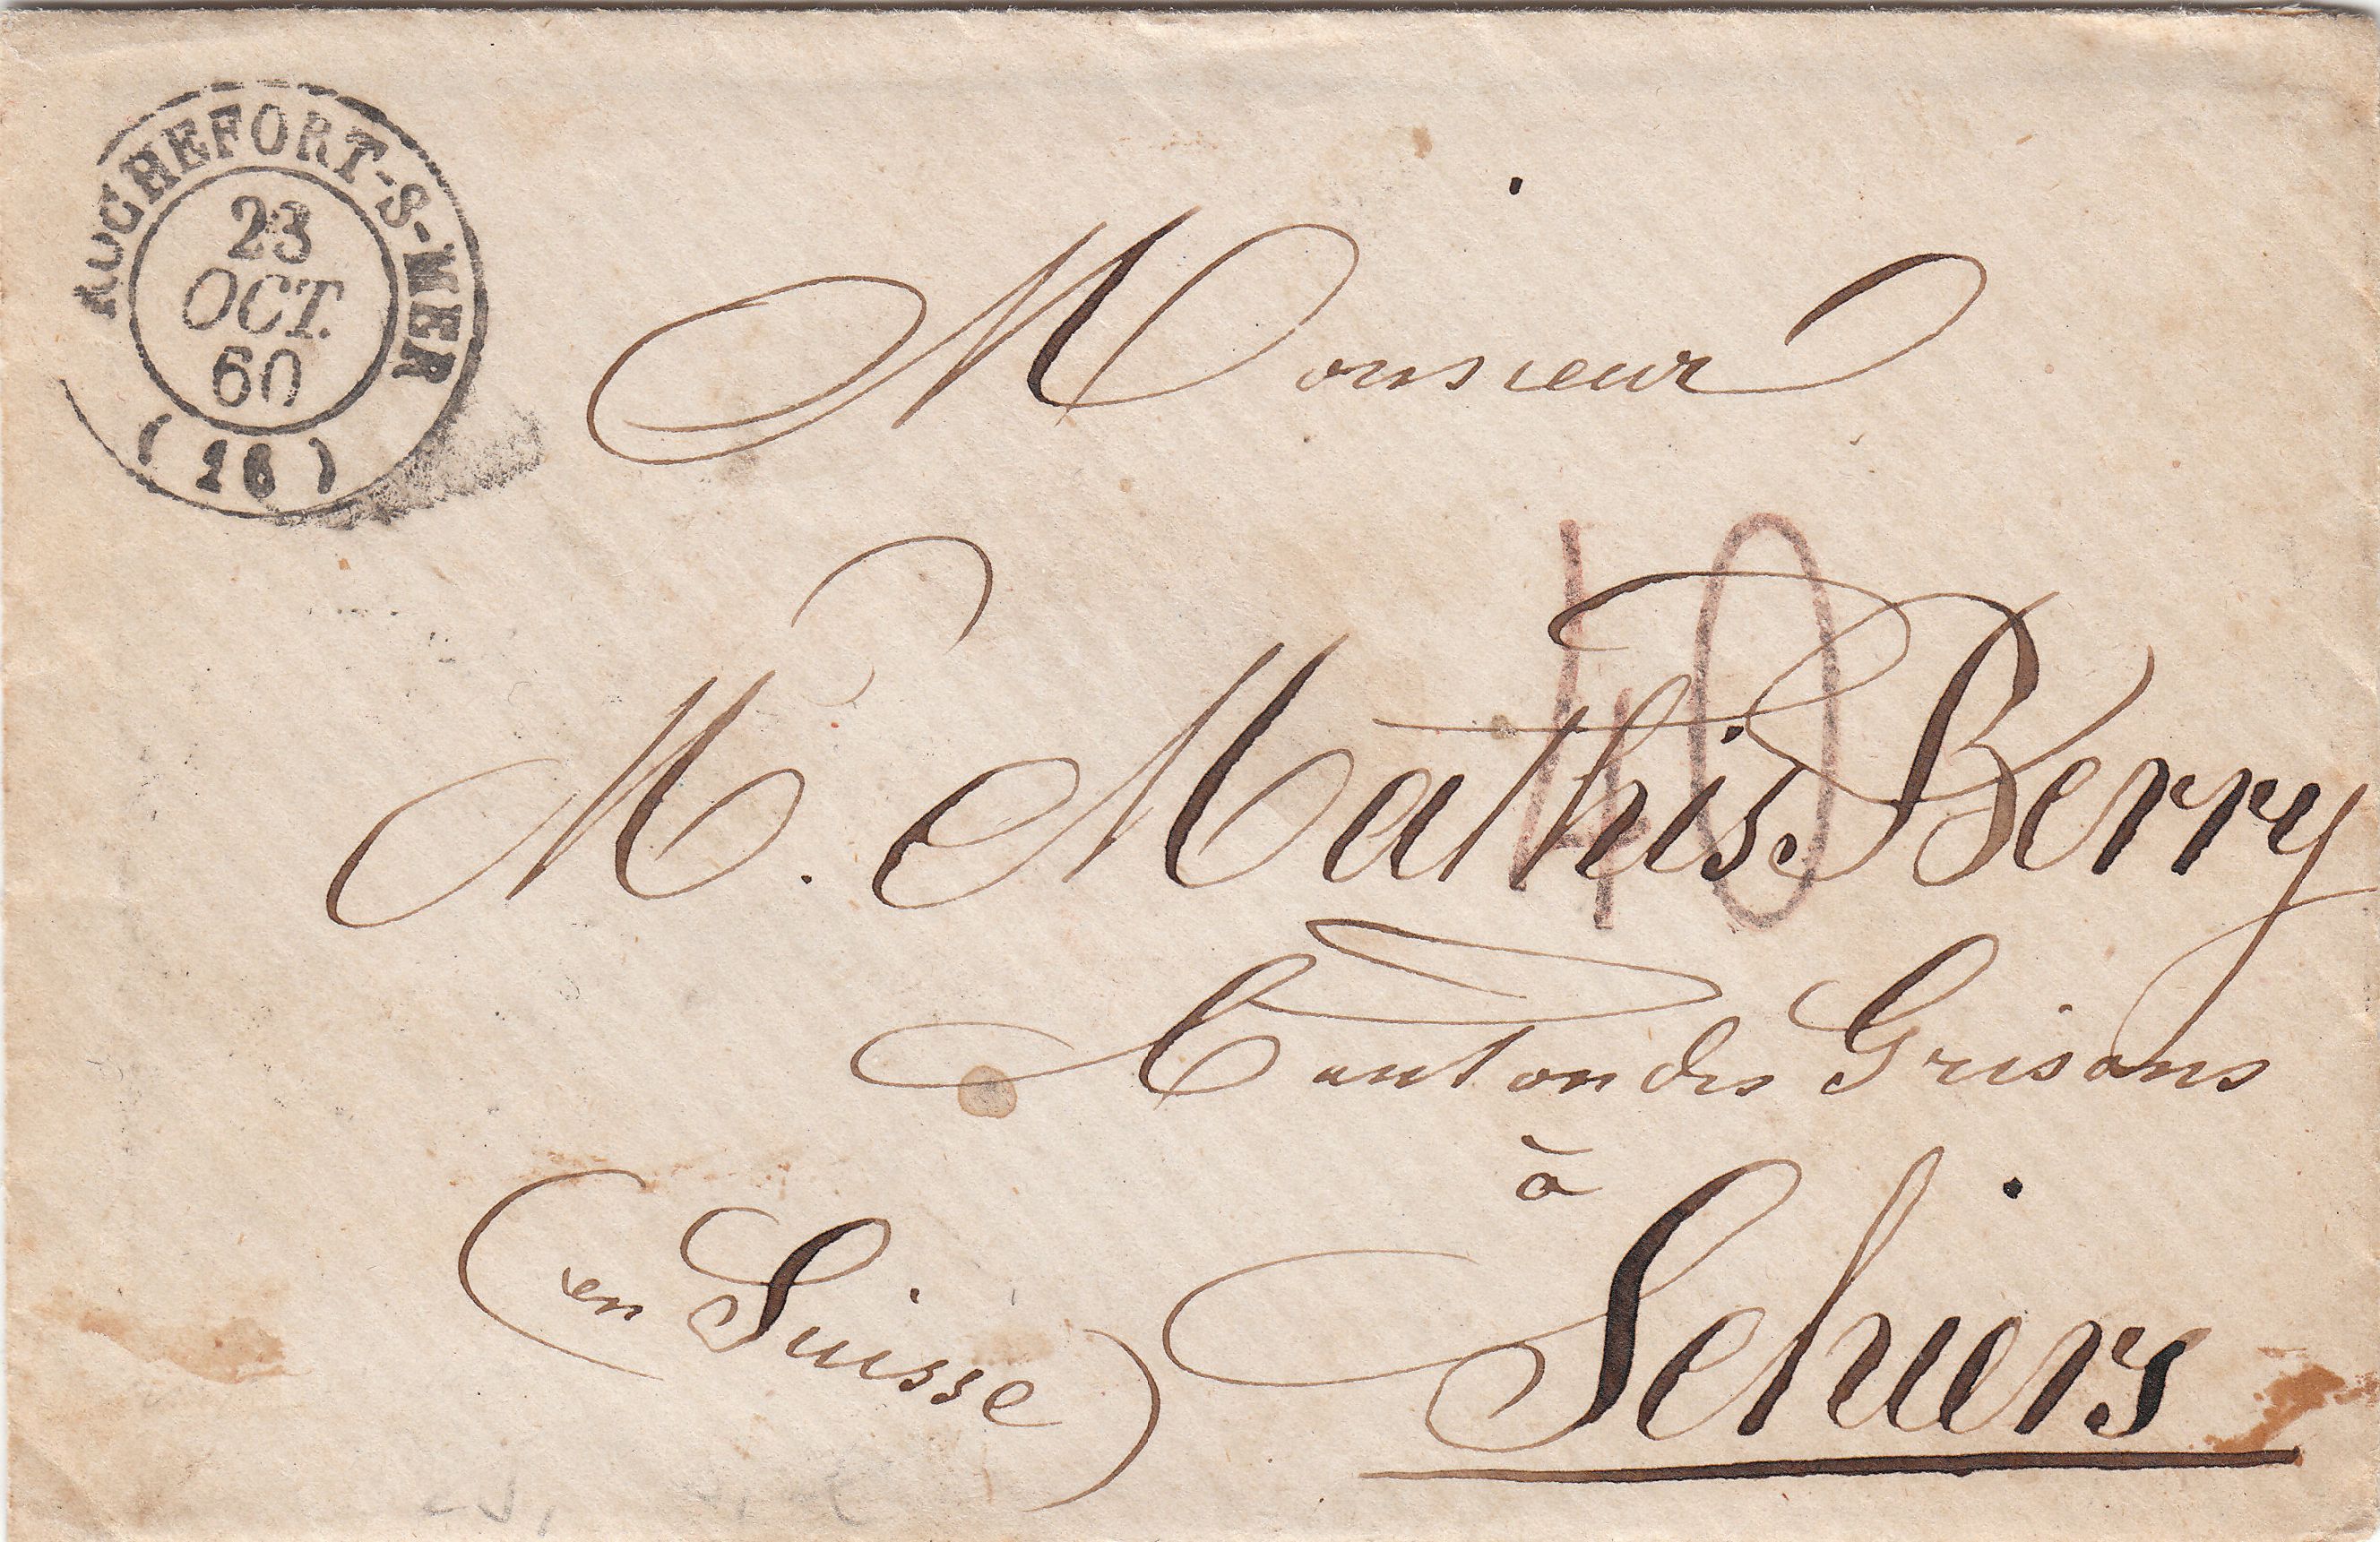 ROCHEFORT-S-MER
23
OCT.
60
(16)
Monsieur
40
M. Mathis Berry
Canton des Grisons
à
Schiers
(en Suisse)